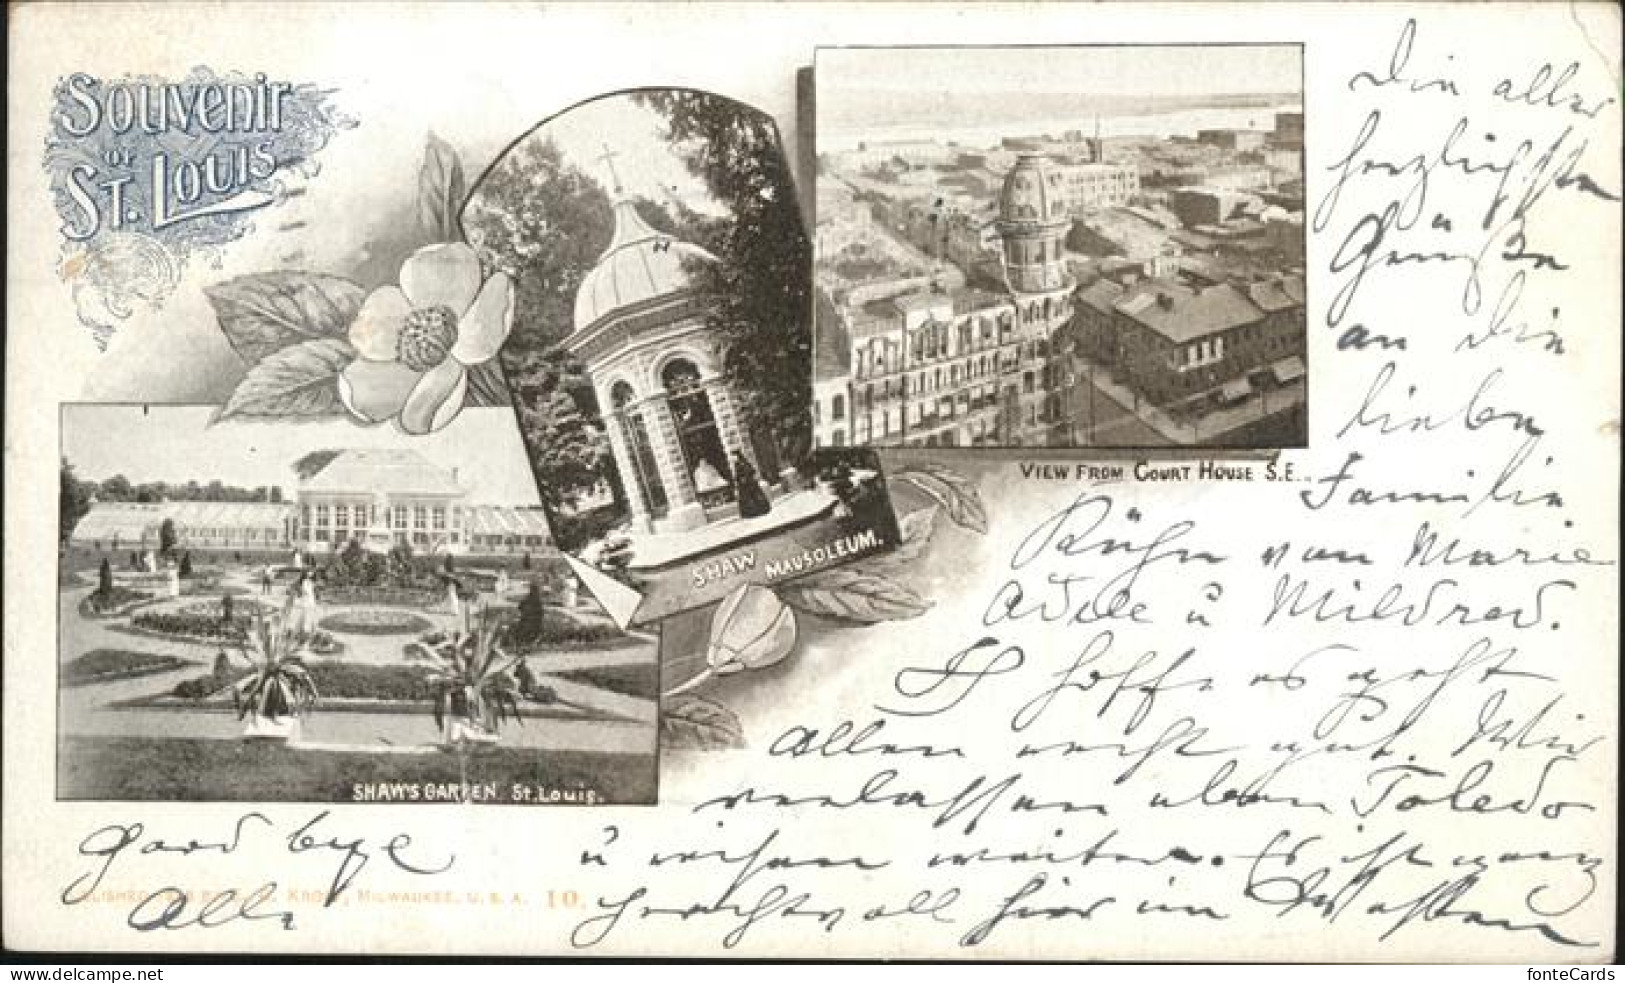 Souvenir
OF
St. Louis
VIEW FROM COURT HOUSE S.E.
SHAW MAUSOLEUM.
SHAW'S GARDEN St. Louis.
Die aller
herzlichsten
Grüße
an die
lieben
Familie
Kühn von Marie
Adele u Mildred.
Ich hoffe es geht
allen recht gut. Wir
verlassen eben Toledo
u reisen weiter. Es ist ganz
prachtvoll hier im Westen
Good bye
Alle
MILWAUKEE, U.S.A. 10.
akpool.de
fonteCards